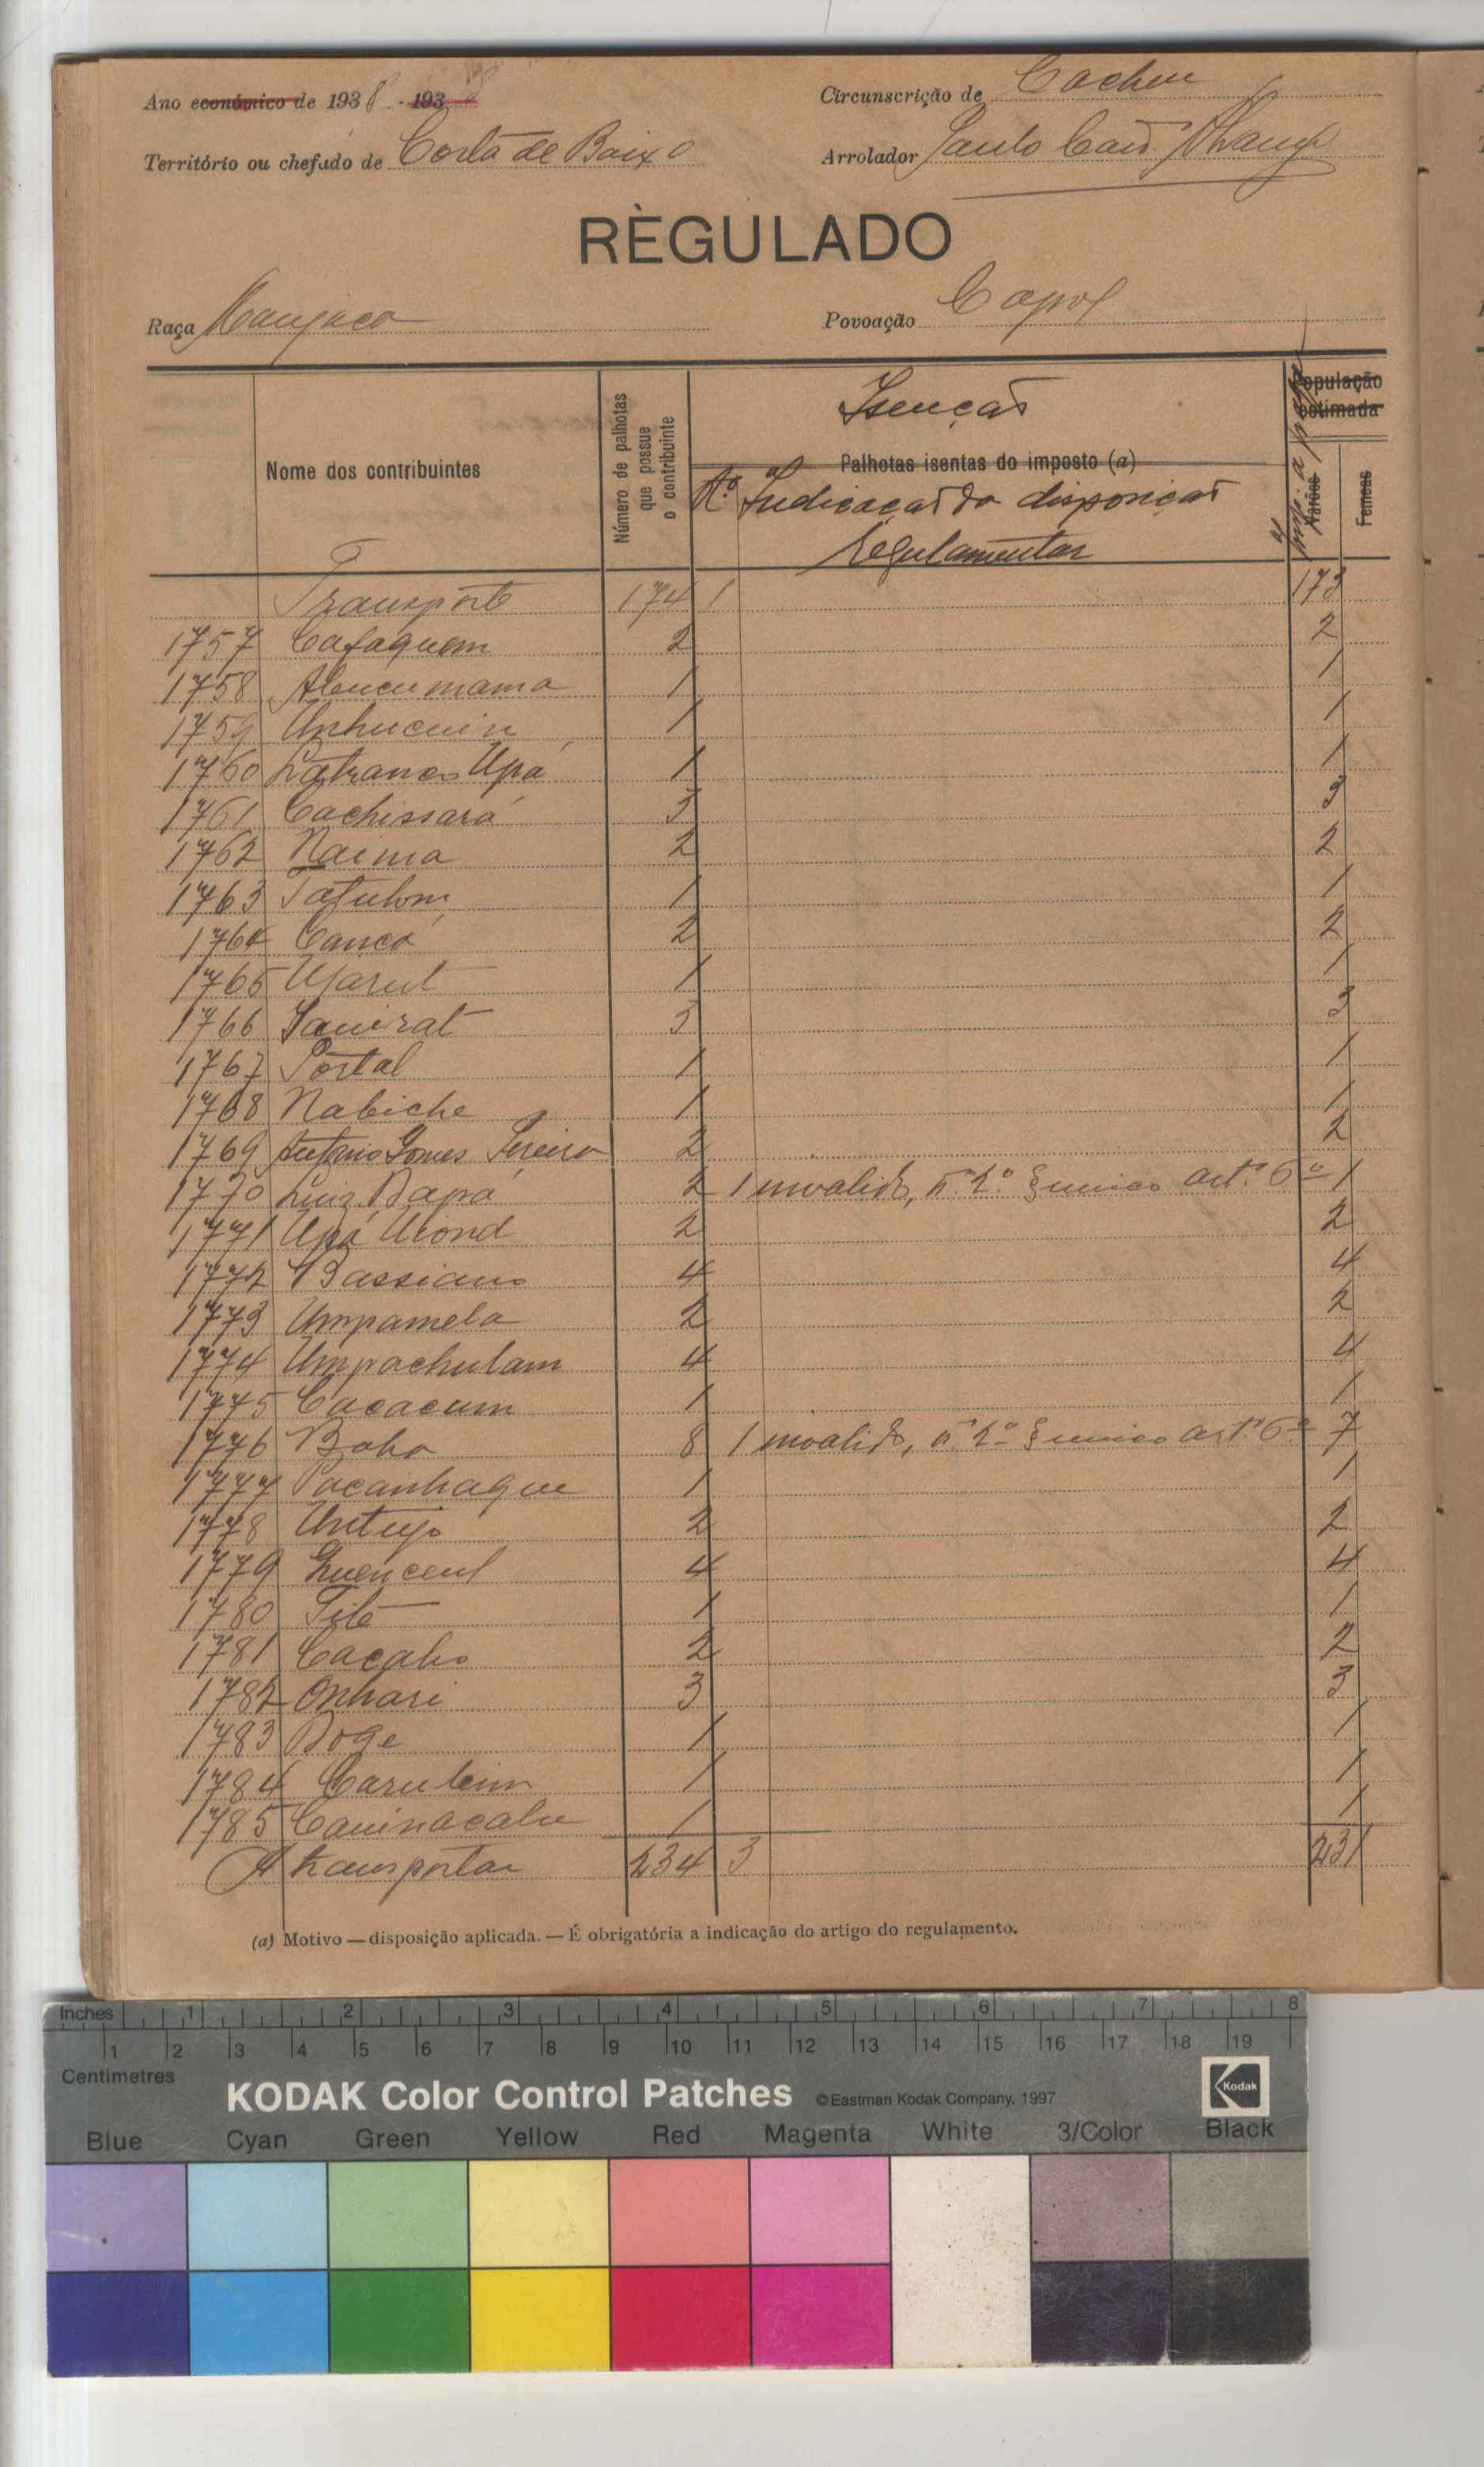 Ano económico de 1938 - 193
Circunscrição de Cacheu
Território ou chefado de Costa de Baixo
Arrolador Paulo
RÈGULADO
Raça Manjaco
Povoação Capol
Nome dos contribuintes
Número de palhotas que possue o contribuinte
Isenção
Palhotas isentas do imposto (a)
N.º Indicação da disposição
Regulamentar
População estimada
Varões
Femeas
Transporte 174 1 173
1757 Cafaquem 2 2
1758 Abucumama 1 1
1759 Unhucuin 1 1
1760 Upá 1 1
1761 Cachissará 3 3
1762 Naima 2 2
1763 Tatulom 1 1
1764 Cancó 2 2
1765 Ujarut 1 1
1766 3 3
1767 Portal 1 1
1768 Nabiche 1 1
1769 António Gomes Pereira 2 2
1770 Luiz Dapá 2 1 invalido, n.º 2.º § unico art.º 6.º 1
1771 Upá Uiond 2 2
1772 Bassiano 4 4
1773 Umpamela 2 2
1774 Umpachulam 4 4
1775 Cacacum 1 1
1776 Bobo 8 1 invalido, n.º 2.º § unico art.º 6.º 7
1777 Pacanhaque 1 1
1778 Untujo 2 2
1779 4 4
1780 Tito 1 1
1781 Cacabo 2 2
1782 Onhari 3 3
1783 Doge 1 1
1784 Carubim 1 1
1785 Caninacabu 1 1
A transportar 234 3 231
(a) Motivo — disposição aplicada. — É obrigatória a indicação do artigo do regulamento.
Inches 1 2 3 4 5 6 7 8
1 2 3 4 5 6 7 8 9 10 11 12 13 14 15 16 17 18 19
Centimetres
KODAK Color Control Patches ©Eastman Kodak Company, 1997 Kodak
Blue Cyan Green Yellow Red Magenta White 3/Color Black